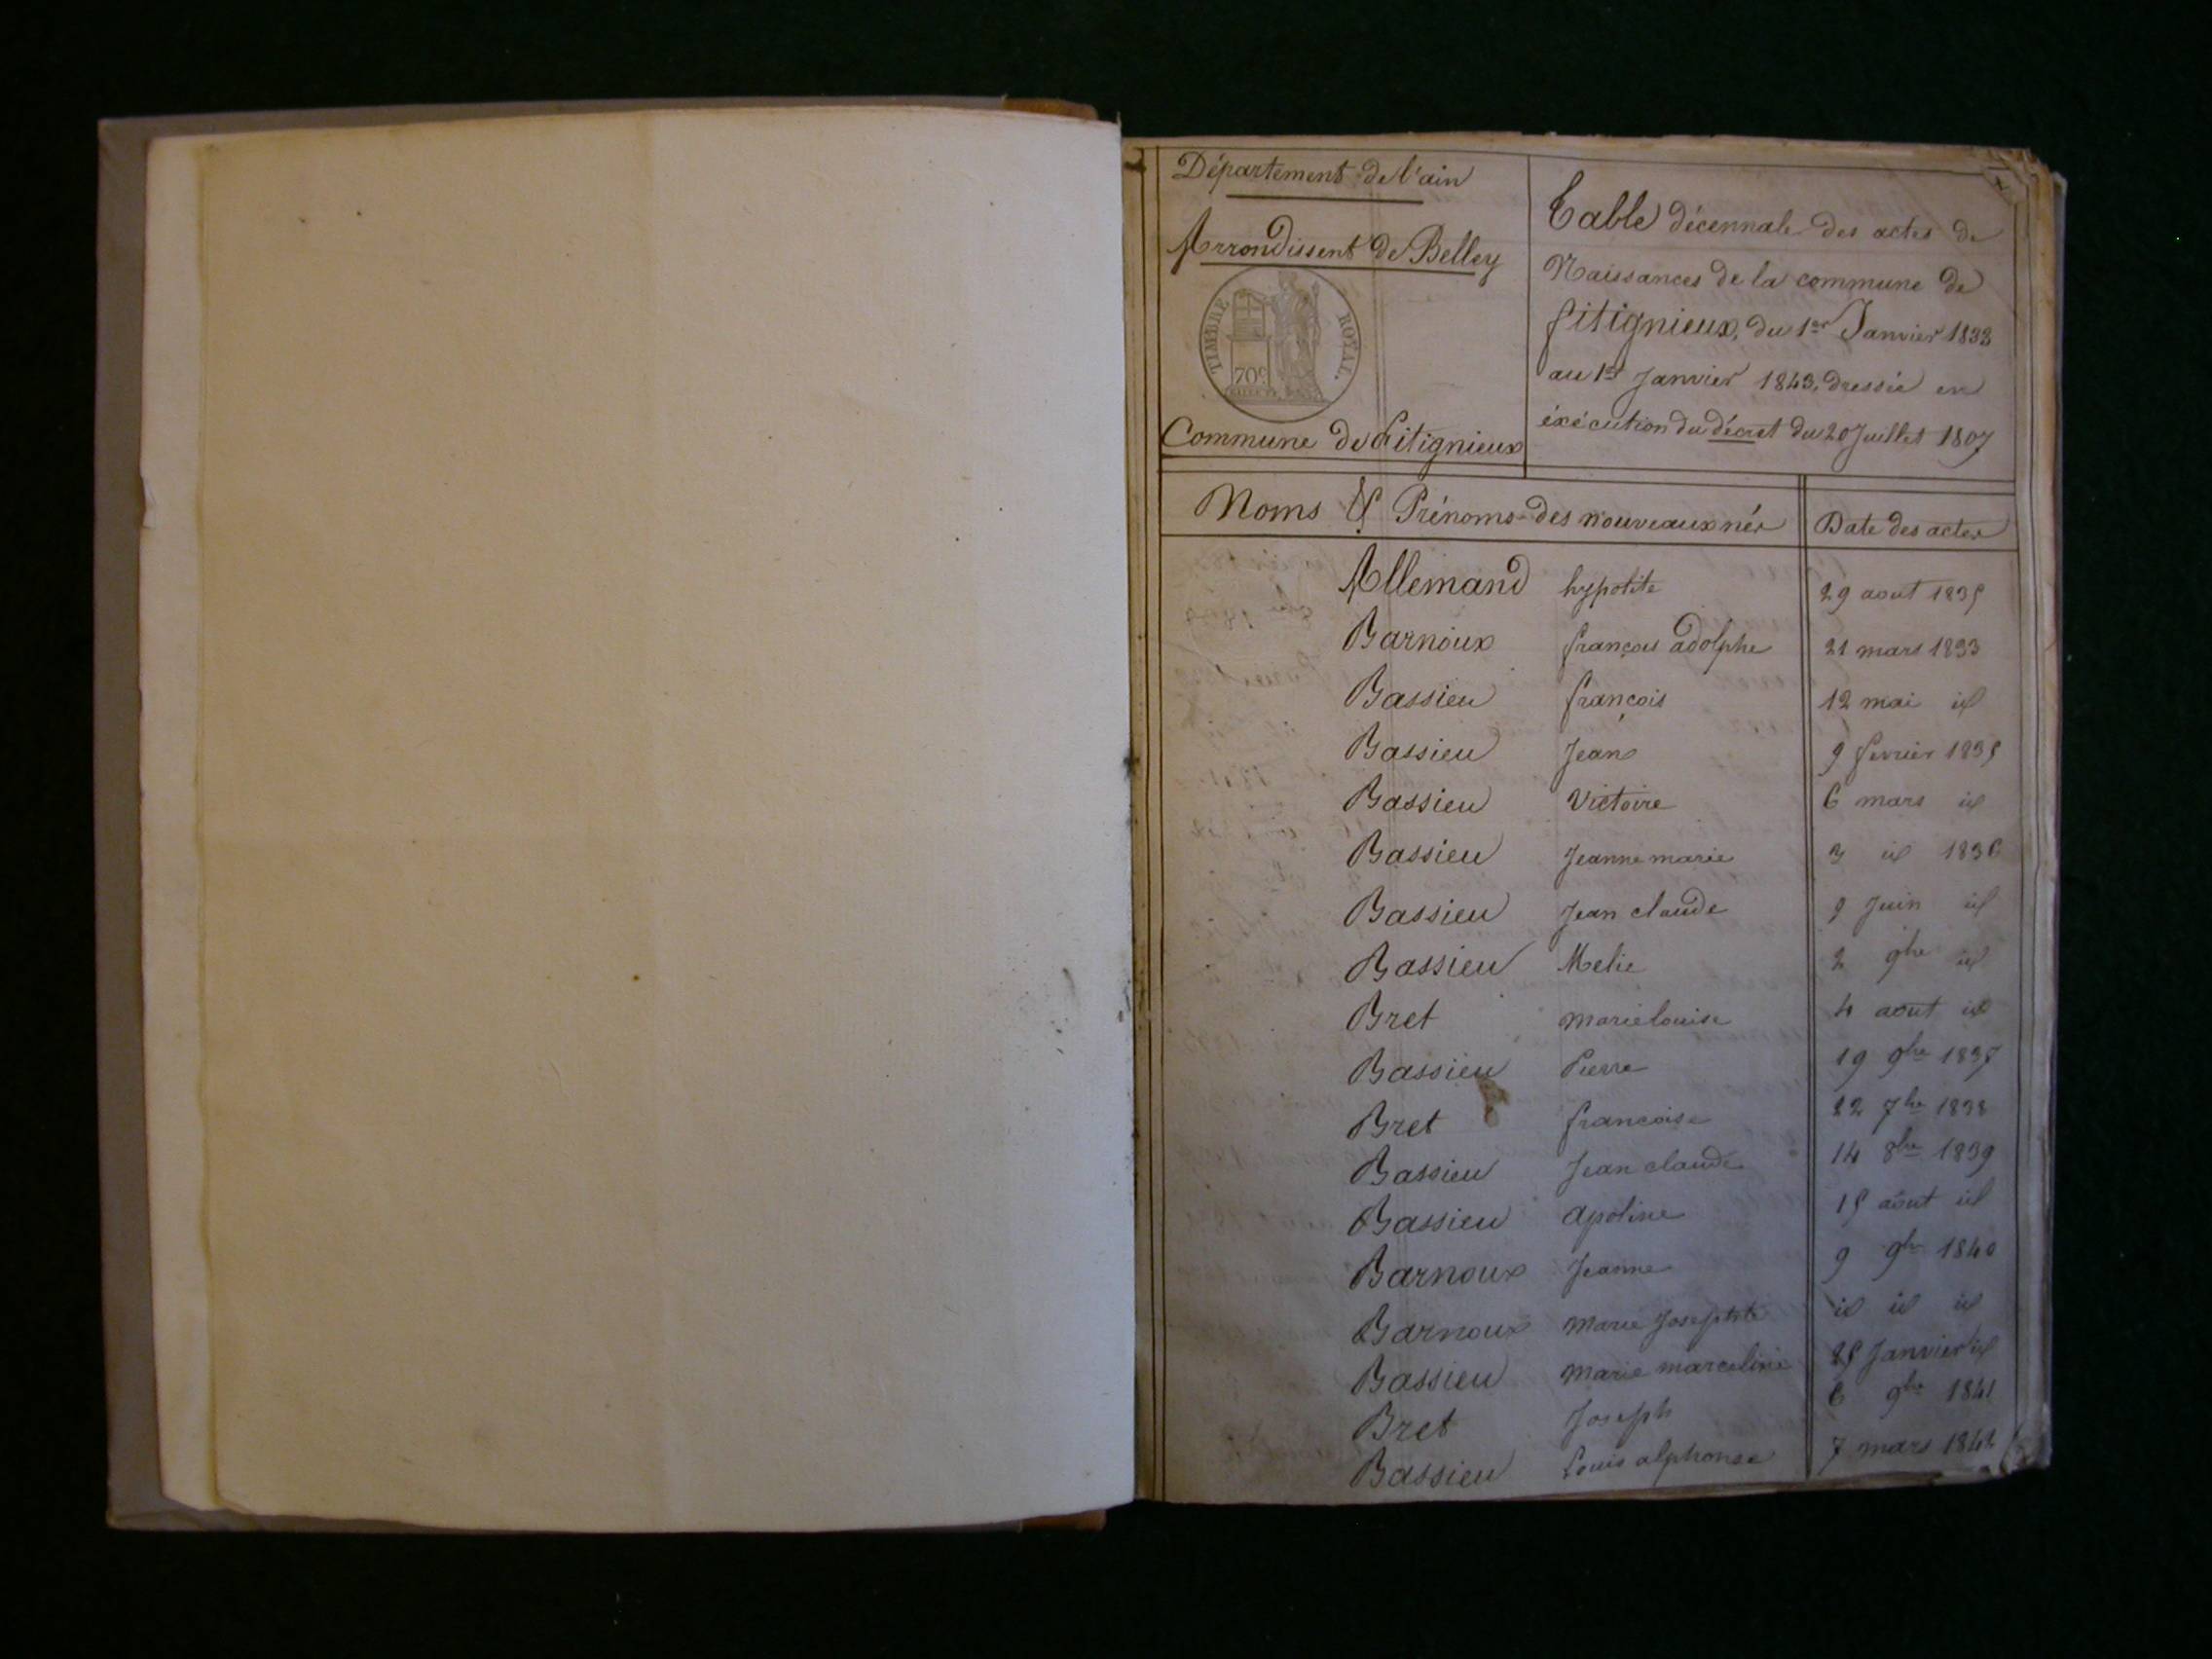 Département de l'ain
Arrondissent de Belley
TIMBRE ROYAL.
70c
Commune de Fitignieux
Table décennale des actes de
Naissances de la commune de
fitignieux, du 1er Janvier 1833
au 1er Janvier 1843, dressée en
éxécution du décret du 20 Juillet 1807
Noms & Prénoms des nouveaux nés Date des actes
Allemand hypolite 29 aout 1835
Barnoux françois adolphe 21 mars 1833
Bassieu françois 12 mai id
Bassieu Jean 9 fevrier 1835
Bassieu Victoire 6 mars id
Bassieu Jeanne marie 3 id 1836
Bassieu Jean claude 9 Juin id
Bassieu Melie 2 9bre id
Bret marie louise 4 aout id
Bassieu Pierre 19 9bre 1837
Bret francoise 22 7bre 1838
Bassieu Jean claude 14 8bre 1839
Bassieu apoline 15 aout id
Barnoux Jeanne 9 9bre 1840
Barnoux marie Josephte id id id
Bassieu marie marceline 25 Janvier id
Bret Joseph 6 9bre 1841
Bassieu Louis alphonse 7 mars 1842